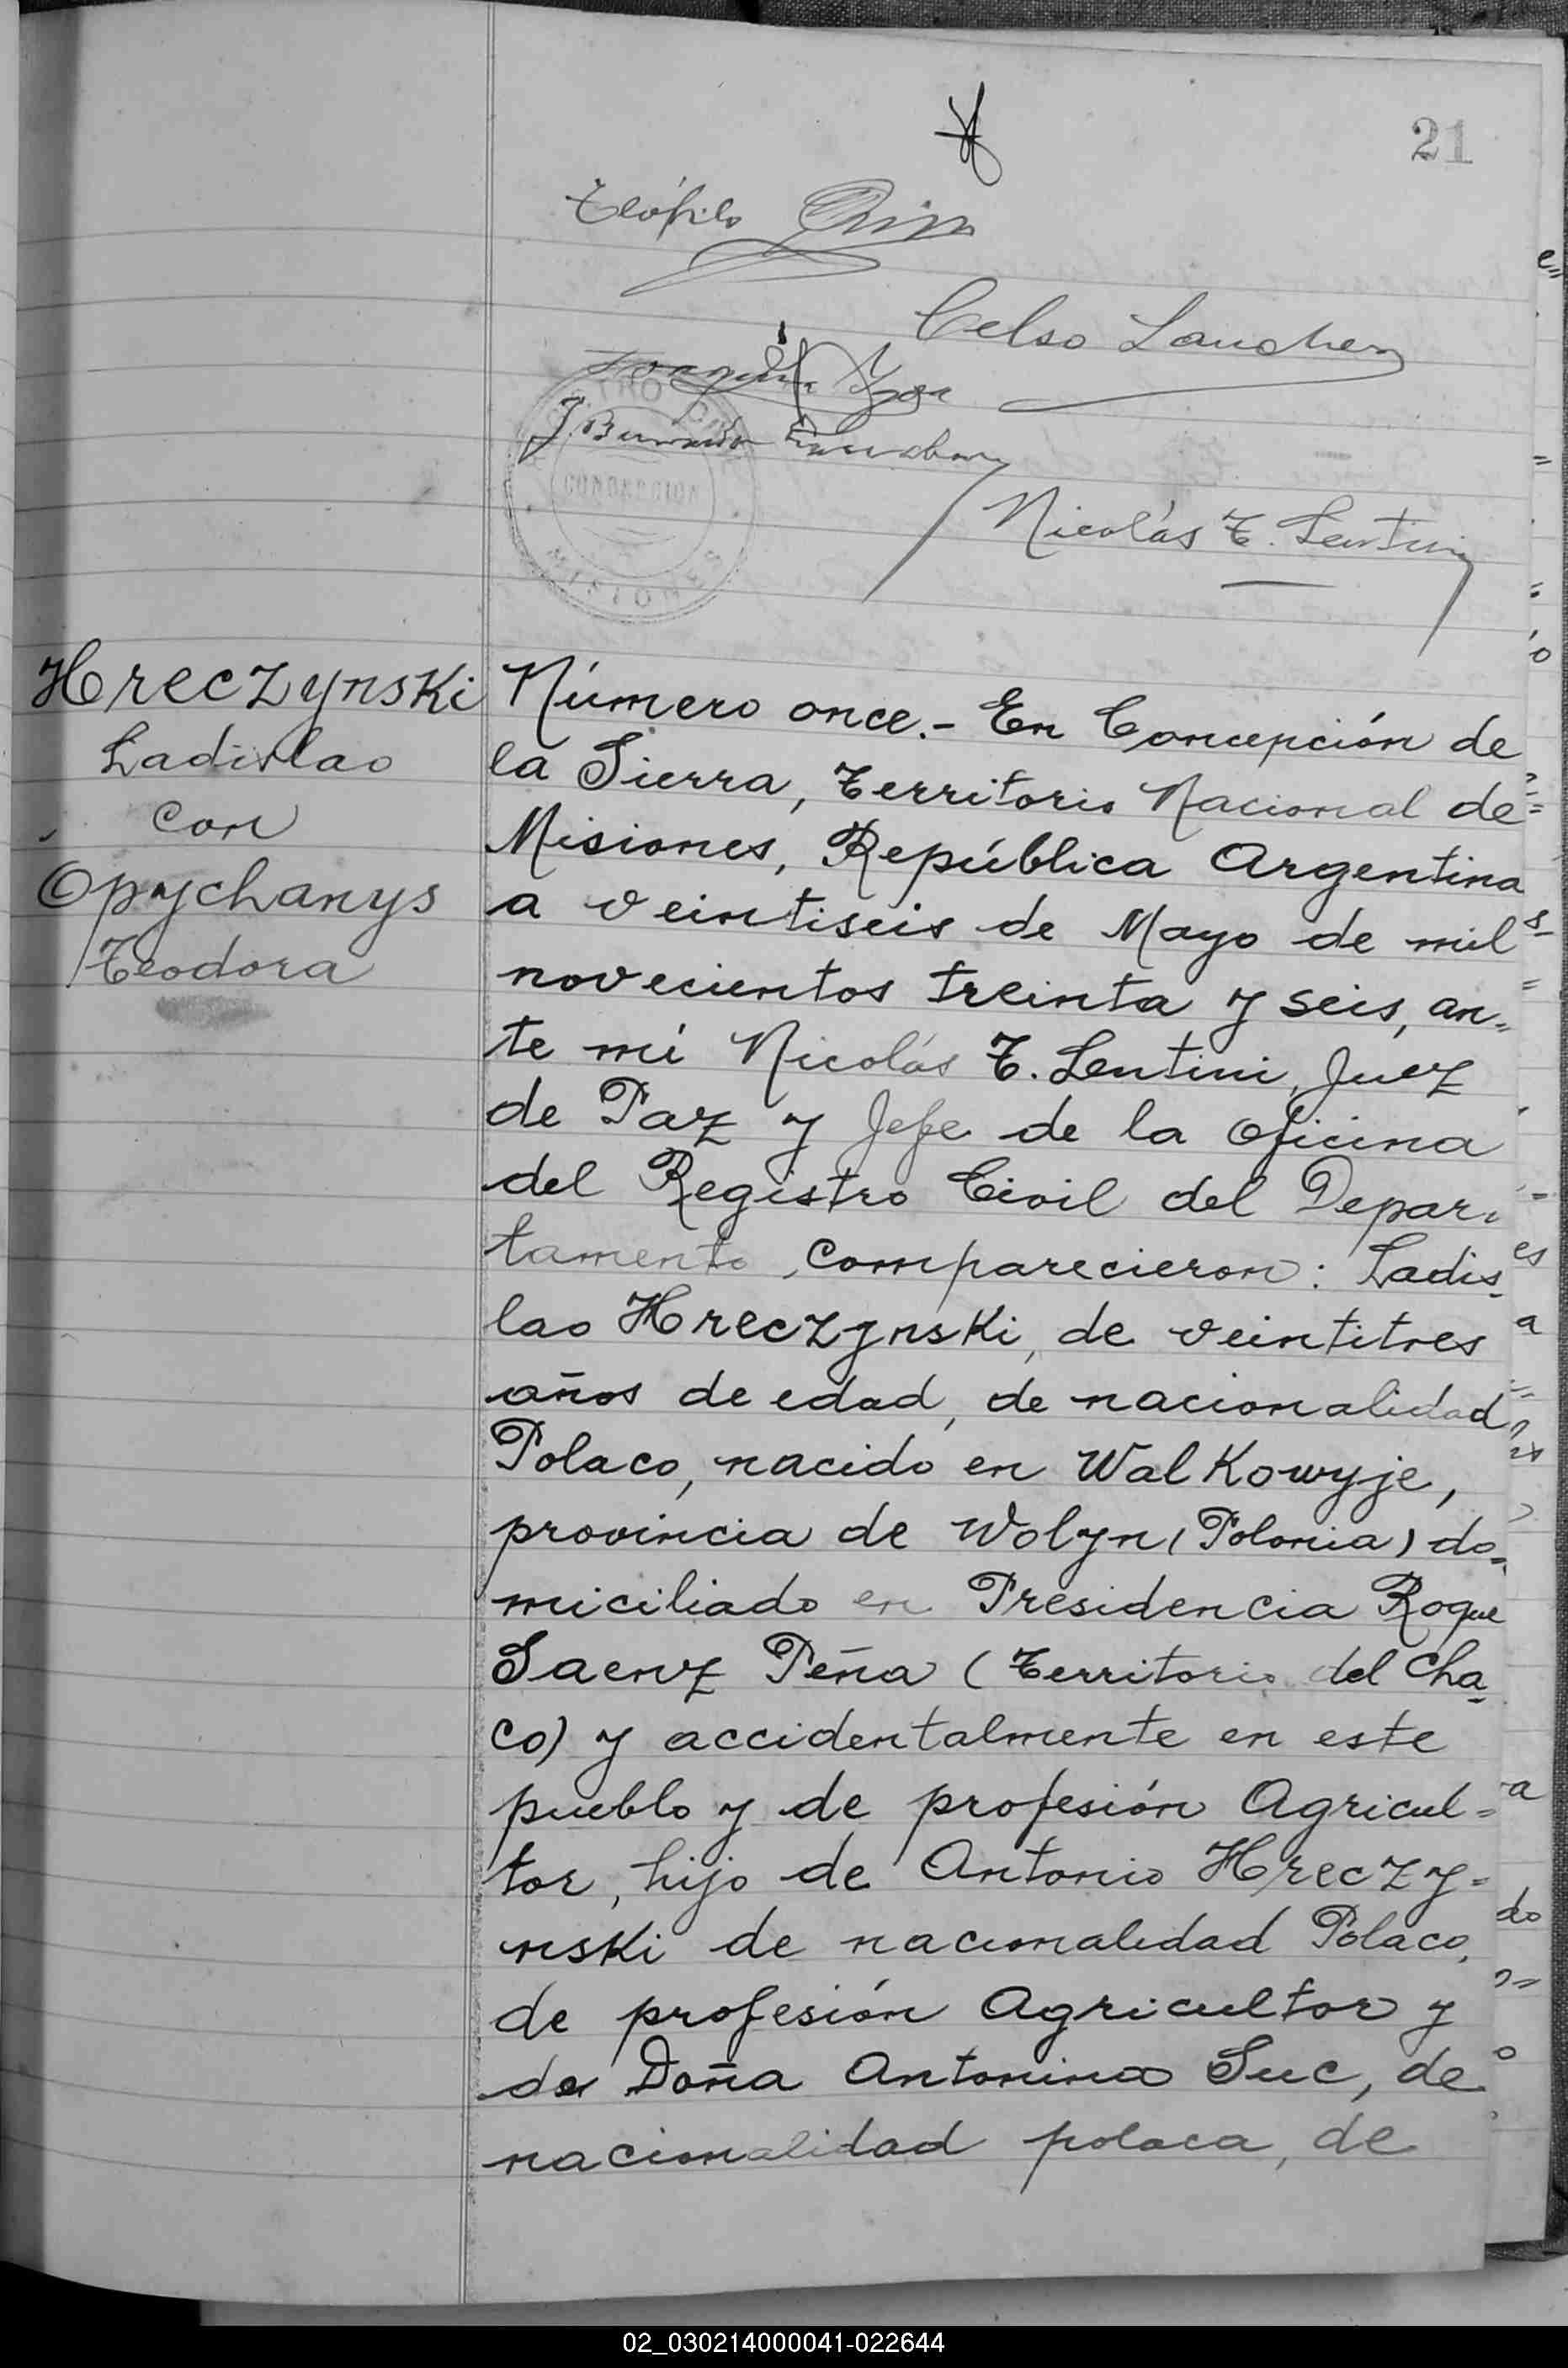 21
Teófilo
Celso Sanchez
J. Bernardo
CONCEPCION
MISIONES
Nicolás T. Lentini
Hreczynski
Ladislao
con
Opychanys
Teodora
Número once.- En Concepción de
la Sierra, Territorio Nacional de
Misiones, República Argentina
a veintiseis de Mayo de mil
novecientos treinta y seis, an=
te mi Nicolás T. Lentini, Juez
de Paz y Jefe de la Oficina
del Registro Civil del Depar-
tamento, comparecieron: Ladis-
lao Hreczynski, de veintitres
años de edad, de nacionalidad
Polaco, nacido en WalKowyje,
provincia de Wolyn (Polonia) do=
miciliado en Presidencia Roque
Saenz Peña (Territorio del Cha-
co) y accidentalmente en este
pueblo y de profesión Agricul=
tor, hijo de Antonio Hreczy=
nski de nacionalidad Polaco,
de profesión Agricultor y
de Doña Antonina Suc, de
nacionalidad polaca, de
02_030214000041-022644